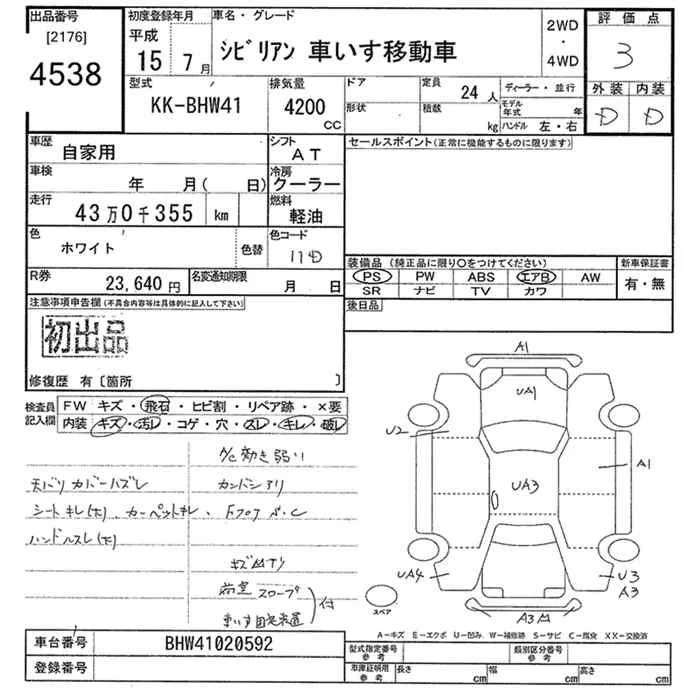 出品番号
[2176]
4538
初度登録年月
平成
15年 7月
車名・グレード
シビリアン 車いす移動車
2WD
・
4WD
評価点
3
外装 内装
D D
型式
KK-BHW41
排気量
4200
CC
ドア
形状
定員
24 人
積載
kg
ディーラー・並行
モデル年式 年
ハンドル 左・右
車歴
自家用
シフト
AT
車検
年 月( 日)
冷房
クーラー
走行
43万0千355 km
燃料
軽油
色
ホワイト
色替
色コード
11D
R券
23,640 円
名変通知期限
月 日
セールスポイント(正常に機能するものに限ります)
装備品(純正品に限り○をつけてください)
新車保証書
PS PW ABS エアB AW
SR ナビ TV カワ
有・無
後日品
注意事項申告欄(不具合内容等は具体的に記入して下さい)
初出品
修復歴 有〔箇所 〕
検査員記入欄
FW キズ・飛石・ヒビ割・リペア跡・×要
内装 キズ・汚レ・コゲ・穴・スレ・キレ・破レ
A/C効き弱い
天バリ カバーハズレ
カンバンアリ
シートキレ(大)、カーペットキレ、
ハンドルスレ(大)
スロープ
車いす固定装置
付
A1
UA1
U2
A1
UA3
UA4
U3
A3
スペア
A-キズ E-エクボ U-凹み W-補修跡 S-サビ C-腐食 XX-交換済
車台番号
BHW41020592
登録番号
型式指定番号
参考
類別区分番号
参考
車庫証明用
参考
長さ cm
幅 cm
高さ cm